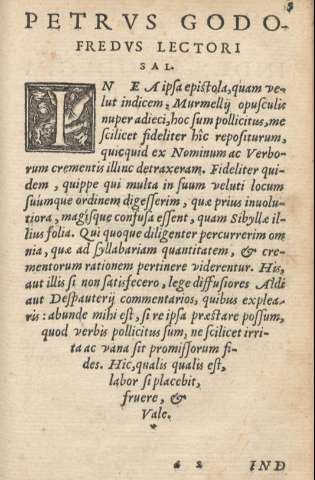 3
PETRVS GODO-
FREDVS LECTORI
SAL.
IN EA ipsa epistola, quam ve-
lut indicem, Murmellij opusculis
nuper adieci, hoc sum pollicitus, me
scilicet fideliter hîc repositurum,
quicquid ex Nominum ac Verbo-
rum crementis illinc detraxeram. Fideliter qui-
dem, quippe qui multa in suum veluti locum
suúmque ordinem digesserim, quæ prius inuolu-
tiora, magísque confusa essent, quam Sibyllæ il-
lius folia. Qui quoque diligenter percurrerim om
nia, quæ ad syllabariam quantitatem, & cre-
mentorum rationem pertinere viderentur. His,
aut illis si non satisfecero, lege diffusiores Aldi
aut Despauterij commentarios, quibus explea-
ris: abunde mihi est, si re ipsa præstare possum,
quod verbis pollicitus sum, ne scilicet irri-
ta ac vana sit promissorum fi-
des. Hic, qualis qualis est,
labor si placebit,
fruere, &
Vale.
a 2 IND